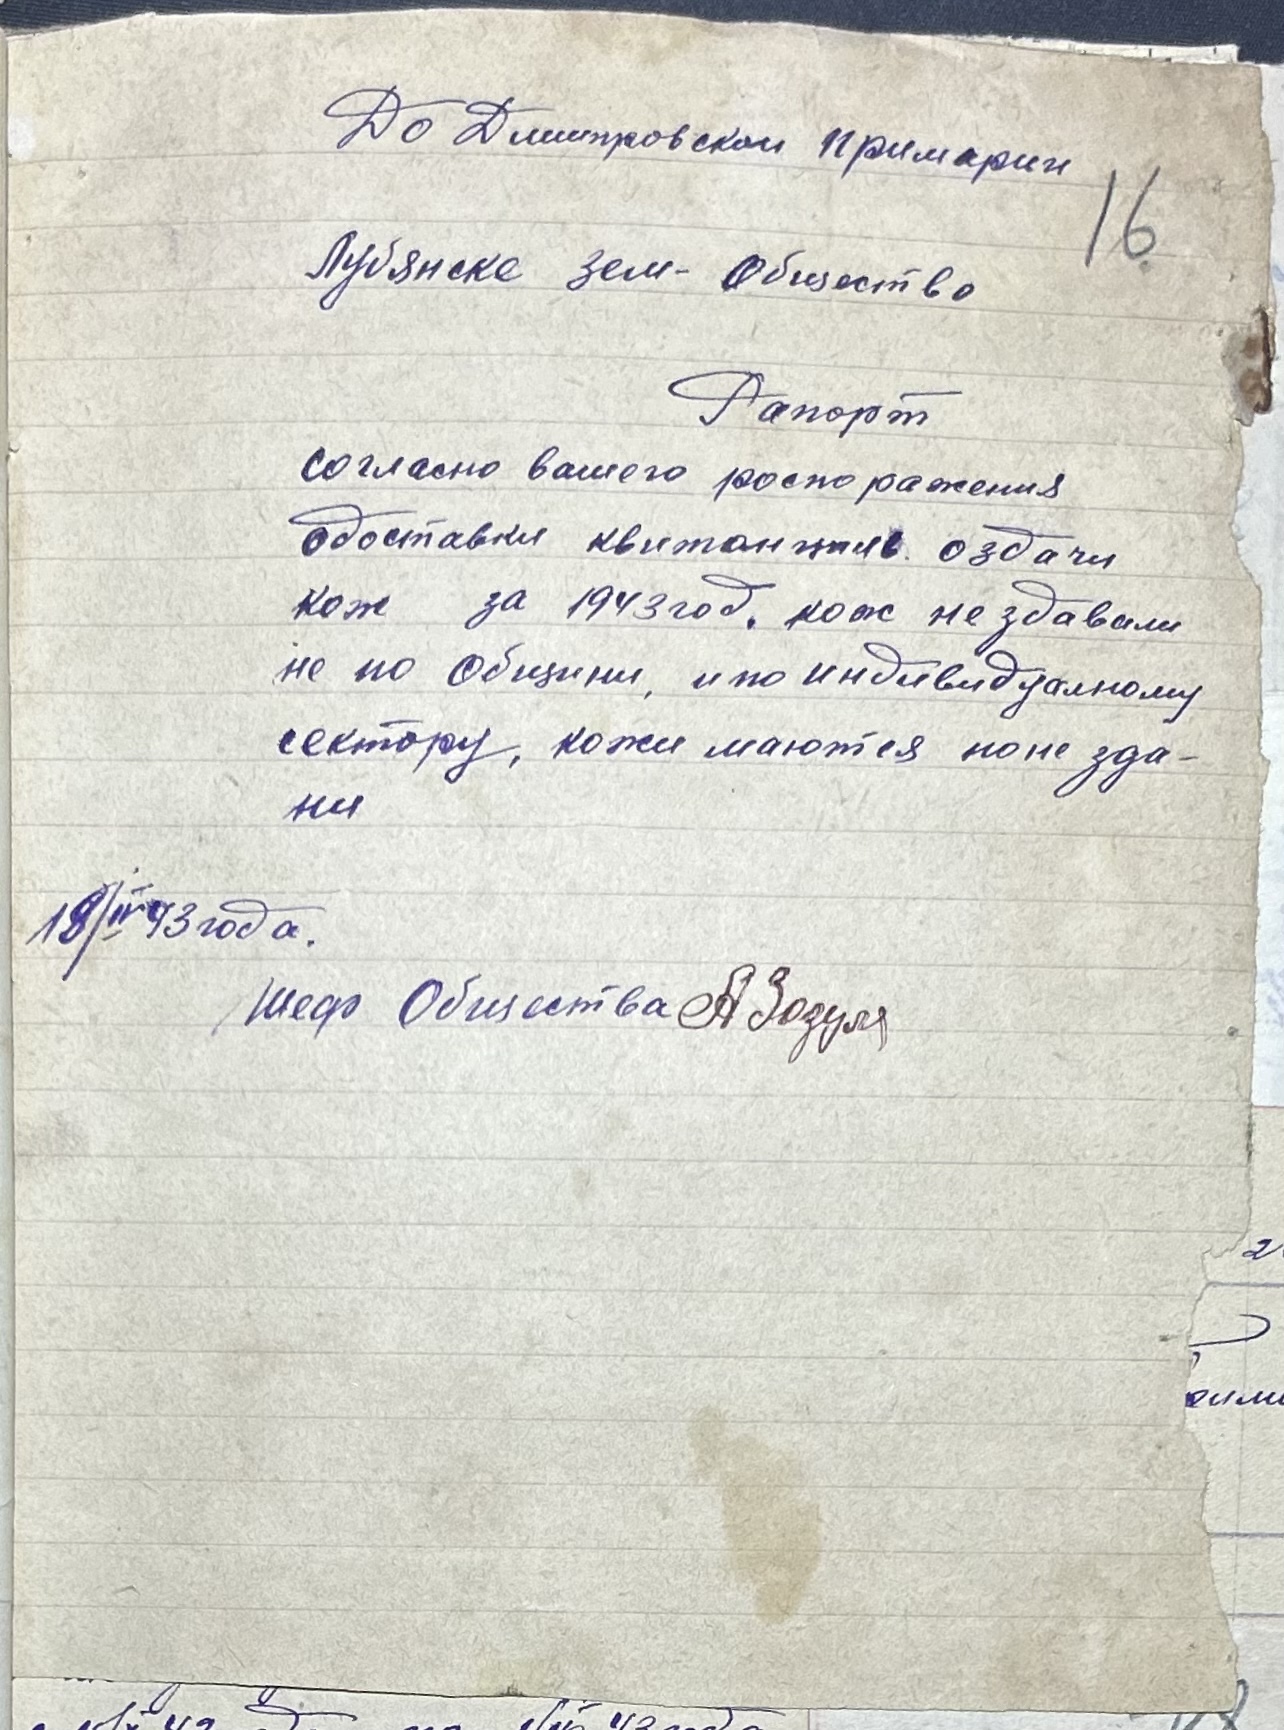 До Дмитровскои примарии
16
Лубянске зем- Общество
Рапорт
согласно вашего роспоражения
одоставки квитанцыив. оздачи
кож за 1943 год. кож не здавали
не по общини, ипо индивидуалному
сектору, кожи маются ноне зда-
ни
18/IV 43 года.
Шеф Общества А Зозуля